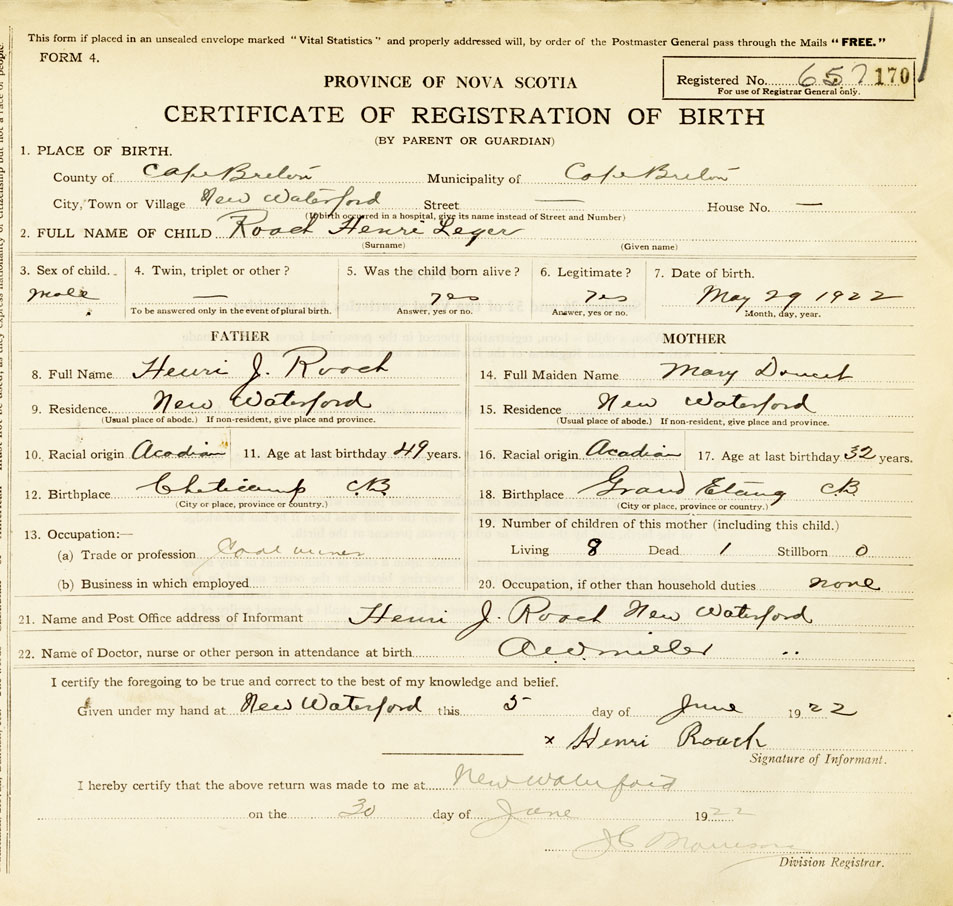 This form if placed in an unsealed envelope marked "Vital Statistics" and properly addressed will, by order of the Postmaster General pass through the Mails "FREE."
FORM 4.
Registered No. 657 170
For use of Registrar General only.
PROVINCE OF NOVA SCOTIA
CERTIFICATE OF REGISTRATION OF BIRTH
(BY PARENT OR GUARDIAN)
1. PLACE OF BIRTH.
County of Cape Breton Municipality of Cape Breton
City, Town or Village New Waterford Street — House No. —
(If birth occurred in a hospital, give its name instead of Street and Number)
2. FULL NAME OF CHILD Roach Henri Leger
(Surname) (Given name)
3. Sex of child. 4. Twin, triplet or other? 5. Was the child born alive? 6. Legitimate? 7. Date of birth.
male — yes yes May 29 1922
To be answered only in the event of plural birth. Answer, yes or no. Answer, yes or no. Month, day, year.
FATHER MOTHER
8. Full Name Henri J. Roach 14. Full Maiden Name Mary Doucet
9. Residence New Waterford 15. Residence New Waterford
(Usual place of abode.) If non-resident, give place and province. (Usual place of abode.) If non-resident, give place and province.
10. Racial origin Acadian 11. Age at last birthday 49 years. 16. Racial origin Acadian 17. Age at last birthday 32 years.
12. Birthplace Cheticamp C.B. 18. Birthplace Grand Etang C.B
(City or place, province or country.) (City or place, province or country.)
13. Occupation:— 19. Number of children of this mother (including this child.)
(a) Trade or profession Coal miner Living 8 Dead 1 Stillborn 0
(b) Business in which employed 20. Occupation, if other than household duties none
21. Name and Post Office address of Informant Henri J. Roach New Waterford
22. Name of Doctor, nurse or other person in attendance at birth. miller ..
I certify the foregoing to be true and correct to the best of my knowledge and belief.
Given under my hand at New Waterford this 5 day of June 1922
x Henri Roach
Signature of Informant.
I hereby certify that the above return was made to me at New Waterford
on the 30 day of June 1922
J C Morrison
Division Registrar.